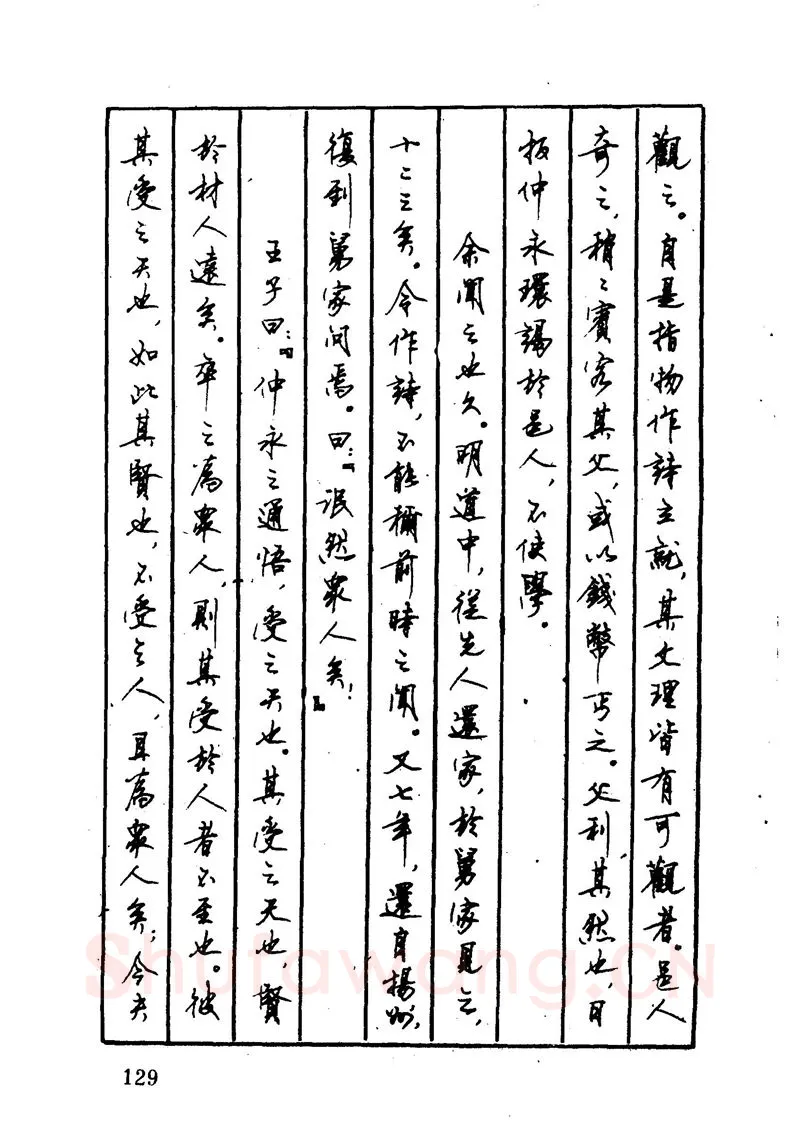 觀之。自是指物作詩立就，其文理皆有可觀者。邑人
奇之，稍々賓客其父，或以錢幣丐之。父利其然也，日
扳仲永環謁於邑人，不使學。
余聞之也久。明道中，從先人還家，於舅家見之，
十二三矣。令作詩，不能稱前時之聞。又七年，還自揚州，
復到舅家問焉。曰：『泯然衆人矣！』
王子曰：『仲永之通悟，受之天也。其受之天也，賢
於材人遠矣。卒之為衆人，則其受於人者不至也。彼
其受之天也，如此其賢也，不受之人，且為衆人矣；今夫
129
Shufawang.CN